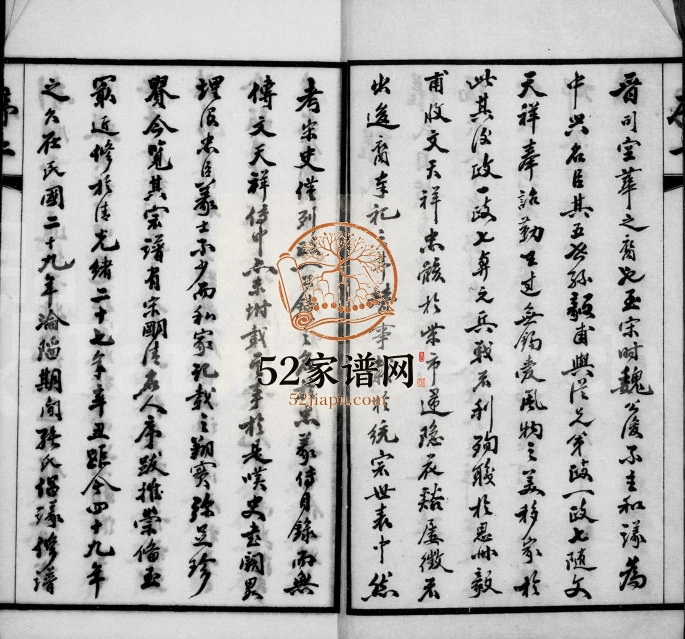 晉司空華之裔也至宋時魏公後不主和議為
中興名臣其五世孫毅甫與從兄弟政一政七隨文
天祥奉詔勤王過無錫愛風物之美移家於
此其後政一政七與元兵戰不利殉職於思毅
甫收文天祥忠骸於柴市遂隱花谿屢徵不
出逸裔奉祀事於統宗世表中然
考宋史僅列忠義傳目錄而無
傳文天祥傳中亦未附載事於是嘆史志闕
埋沒忠臣義士不少而私家記載之翔實殊足珍
貴今覽其宗譜有宋明清名人序跋推崇備至
最近修於清光緒二十七年辛丑距今四十九年
之久在民國二十九年淪陷期間張氏倡議修譜
52家谱网
52jiapu.com